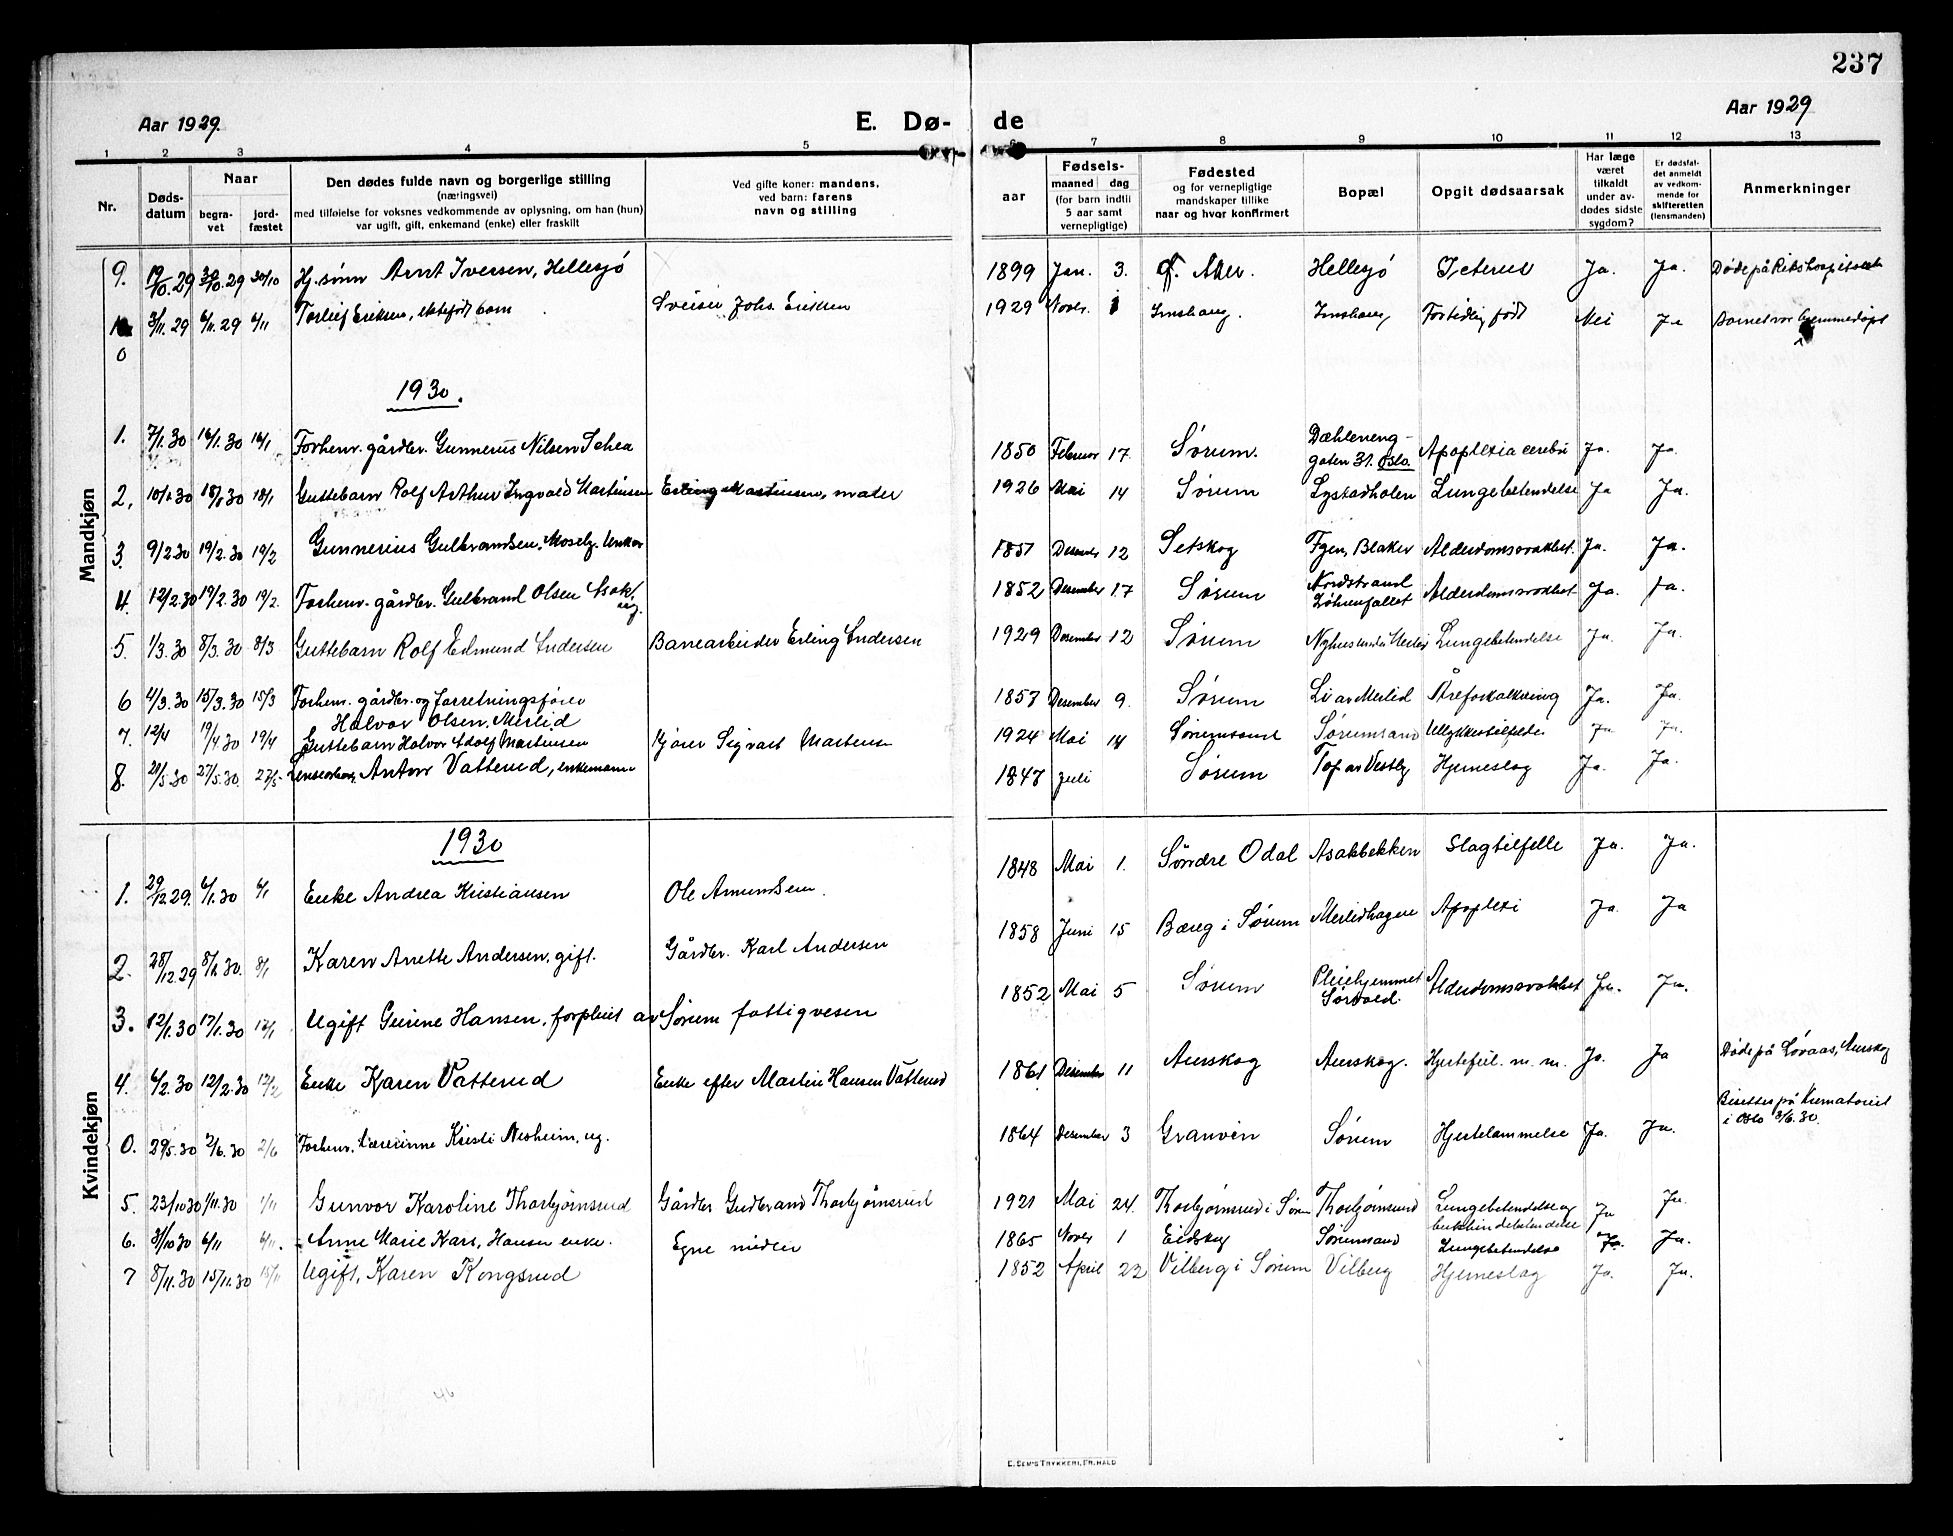 237
Aar 1929.
E. Dø-
de
Aar 1929
1 2 3 4 5 6 7 8 9 10 11 12 13
Nr.
Døds-
datum
Naar
begra-
vet
jord-
fæstet
Den dødes fulde navn og borgerlige stilling
(næringsvei)
med tilføielse for voksnes vedkommende av oplysning, om han (hun)
var ugift, gift, enkemand (enke) eller fraskilt
Ved gifte koner: mandens,
ved barn: farens
navn og stilling
aar
Fødsels-
maaned dag
(for barn indtil
5 aar samt
vernepligtige)
Fødested
og for vernepligtige
mandskaper tillike
naar og hvor konfirmert
Bopæl
Opgit dødsaarsak
Har læge
været
tilkaldt
under av-
dødes sidste
sygdom?
Er dødsfal-
det anmeldt
av vedkom-
mende for
skifteretten
(lensmanden)
Anmerkninger
Mandkjøn
9. 19/10.29 30/10.29 30/10 Hj. sønn Arnt Iversen, Hellesjø 1899 Jan. 3. Aker. Hellesjø Icterus Ja. Ja. Døde på Rikshospitalet
10 3/11.29 6/11.29 6/11 Torleif Eriksen, ektefødt barn Sveiser Johs. Eriksen 1929 Novbr. 1 Imshaug. Imshaug Fortidlig født Nei Ja Barnet var hjemmedøpt
1930.
1. 7/1.30 16/1.30 16/1 Forhenv. gårdbr. Gunnerius Nilsen Schea 1850 Februar 17. Sørum. Dæhleneng-
gaten 31. Oslo. Apoplexia cerebri Ja. Ja.
2. 10/1.30 18/1.30 18/1 Guttebarn Rolf Arthur Ingvald Martinsen Erling Martinsen, maler 1926 Mai 14 Sørum Lystadholen Lungebetendelse Ja Ja.
3. 9/2.30 19/2.30 19/2 Gunnerius Gulbrandsen, Moselg. Unkar 1851 Desember 12 Setskog Fgen, Blaker Alderdomssvakhet. Ja. Ja.
4. 12/2.30 19/2.30 19/2. Forhenv. gårdbr. Gulbrand Olsen Asak, ug. 1852 Desember 17 Sørum Nordstrand
Løhrenfallet Alderdomssvakhet Ja. Ja.
5. 1/3.30 8/3.30 8/3 Guttebarn Rolf Edmund Andersen Banearbeider Erling Andersen 1929 Desember 12 Sørum Nyhus under Merlid Lungebetendelse Ja. Ja.
6 4/3.30 15/3.30 15/3 Forhenv. gårdbr. og forretningsfører
Halvor Olsen Merlid 1857 Desember 9. Sørum Li av Merlid Åreforkalkning Ja. Ja.
7. 12/4 19/4.30 19/4 Guttebarn Halvor Adolf Martinsen Kjører Sigvart Martinsen 1924 Mai 14 Sørumsand Sørumsand Ulykkestilfelde Ja Ja.
8. 20/5.30 27/5.30. 27/5- Anton Vatterud, enkemann 1847 Juli Sørum Tof av Vestby Hjerneslag Ja. Ja.
Kvindekjøn
1930
1. 29/12.29. 6/1.30 6/1 Enke Andrea Kristiansen Ole Amundsen. 1848 Mai 1. Søndre Odal Asakbekken Slagtilfelle Ja. Ja.
2. 28/12.29 8/1.30. 8/1 Karen Anette Andersen, gift. Gårdbr. Karl Andersen 1858 Juni 15 Bæreg i Sørum Merlidhagen Apoplexi Ja. Ja
3. 12/1.30 17/1.30 17/1 Ugift Gurine Hansen, forpleiet av Sørum fattigvesen 1852 Mai 5 Sørum Pleiehjemmet
Sørvald. Alderdomssvakhet Ja. Ja.
4. 6/2.30 12/2.30 12/2 Enke Karen Vatterud Enke efter Martin Hansen Vatterud 1861 Desember 11 Aurskog Aurskog. Hjertefeil. m. m. Ja. Ja Døde på Lóvaas, Aurskog
0. 29/5.30 2/6.30 2/6 Forhenv. lærerinne Kristi Nesheim, ug. 1864 Desember 3 Granvin Sørum Hjertelammelse Ja. Ja. Bisettes på Krematoriet
i Oslo 3/6.30.
5. 23/10.30 1/11.30 1/11 Gunvor Karoline Thorbjørnsrud Gårdbr Gudbrand Thorbjørnsrud 1921 Mai 24. Thorbjørnsrud i Sørum Thorbjørnsrud Lungebetendelse og
bukhindebetendelse Ja Ja.
6. 31/10.30 6/11 6/11. Anne Marie Kars. Hansen enke. Egne midler 1865 Novbr 1 Eidskog Sørumsand Lungebetendelse Ja. Ja.
7 8/11.30 15/11.30 15/11 Ugift, Karen Kongsrud 1852 April 22 Vilberg i Sørum Vilberg Hjerneslag Ja. Ja.
E. SEM'S TRYKKERI, FR.HALD